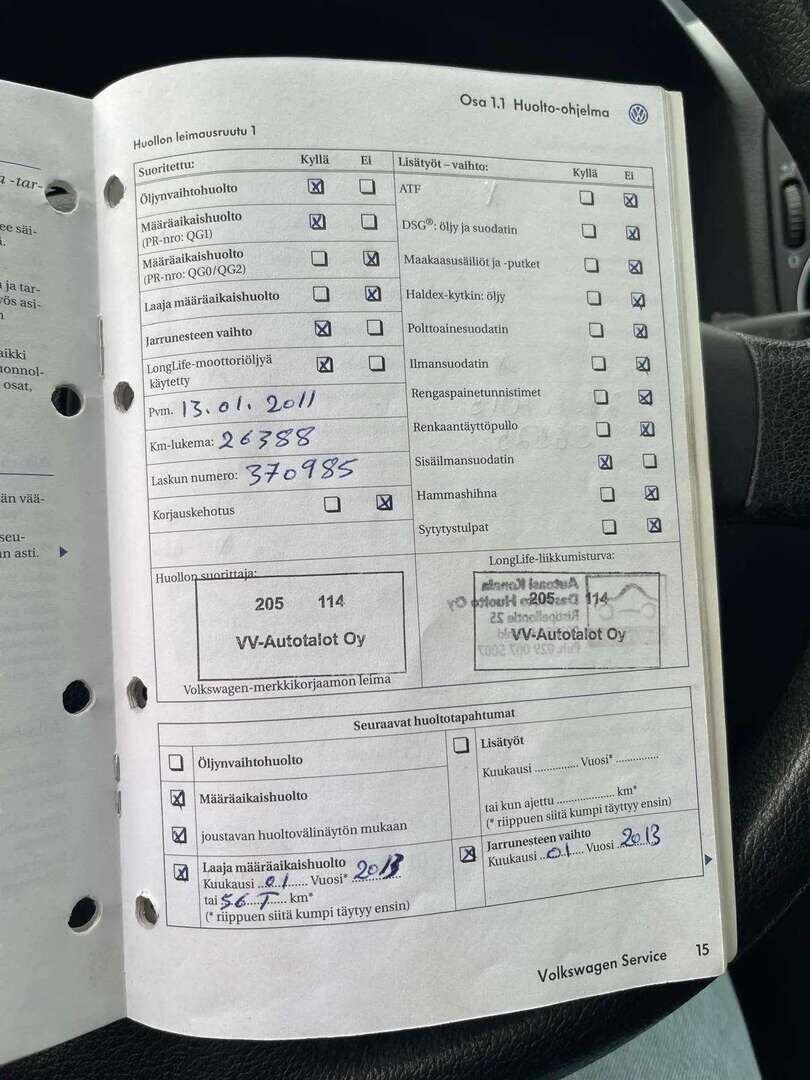 Osa 1.1 Huolto-ohjelma
Huollon leimausruutu 1
Suoritettu: Kyllä Ei
Öljynvaihtohuolto
Määräaikaishuolto
(PR-nro: QG1)
Määräaikaishuolto
(PR-nro: QG0/QG2)
Laaja määräaikaishuolto
Jarrunesteen vaihto
LongLife-moottoriöljyä
käytetty
Pvm. 13.01.2011
Km-lukema: 26388
Laskun numero: 370985
Korjauskehotus
Lisätyöt – vaihto: Kyllä Ei
ATF
DSG®: öljy ja suodatin
Maakaasusäiliöt ja -putket
Haldex-kytkin: öljy
Polttoainesuodatin
Ilmansuodatin
Rengaspainetunnistimet
Renkaantäyttöpullo
Sisäilmansuodatin
Hammashihna
Sytytystulpat
Huollon suorittaja:
205 114
VV-Autotalot Oy
Volkswagen-merkkikorjaamon leima
LongLife-liikkumisturva:
205 114
VV-Autotalot Oy
Seuraavat huoltotapahtumat
Öljynvaihtohuolto
Määräaikaishuolto
joustavan huoltovälinäytön mukaan
Laaja määräaikaishuolto
Kuukausi ..01...... Vuosi* 2013
tai 56 T km*
(* riippuen siitä kumpi täytyy ensin)
Lisätyöt
Kuukausi .............. Vuosi* ..............
tai kun ajettu .................. km*
(* riippuen siitä kumpi täytyy ensin)
Jarrunesteen vaihto
Kuukausi ..01.... Vuosi 2013
Volkswagen Service 15
a -tar-
ee säi-
ja tar-
yös asi-
aikki
uonnol-
osat,
än vää-
seu-
n asti.